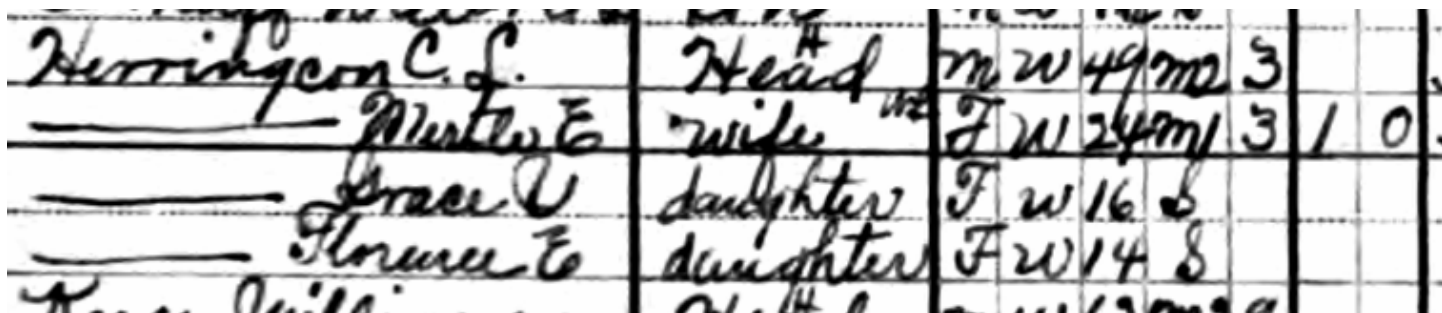 Herrington C. L. Head H m W 49 m2 3
Mertle E wife F W 24 m1 3 1 0
Grace V daughter F W 16 S
Florence E daughter F W 14 S
Head